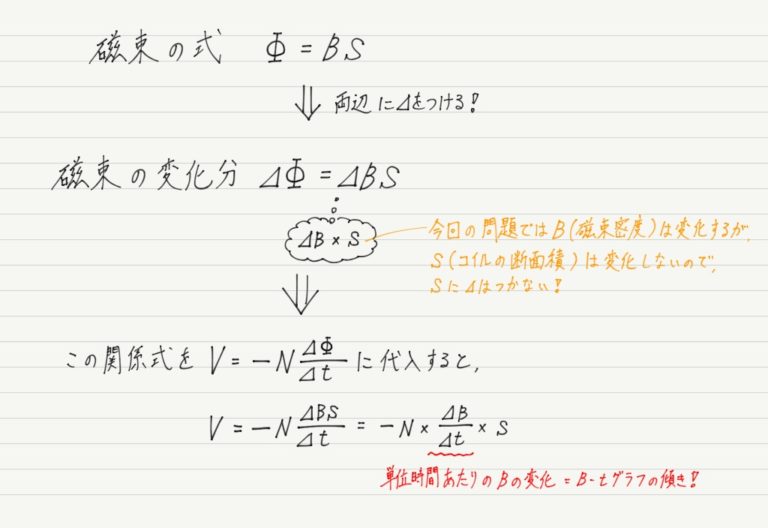 磁束の式 Φ = BS
⇓ 両辺にΔをつける!
磁束の変化分 ΔΦ = ΔBS
ΔB × S
今回の問題ではB(磁束密度)は変化するが、
S(コイルの断面積)は変化しないので、
SにΔはつかない!
⇓
この関係式を V = -N ΔΦ/Δt に代入すると,
V = -N ΔBS/Δt = -N × ΔB/Δt × S
単位時間あたりのBの変化 = B-tグラフの傾き!